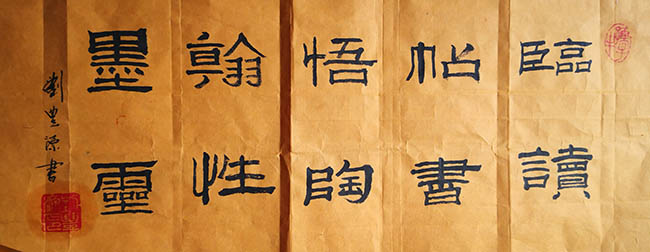 臨帖悟翰墨
讀書陶性靈
劉豊源書